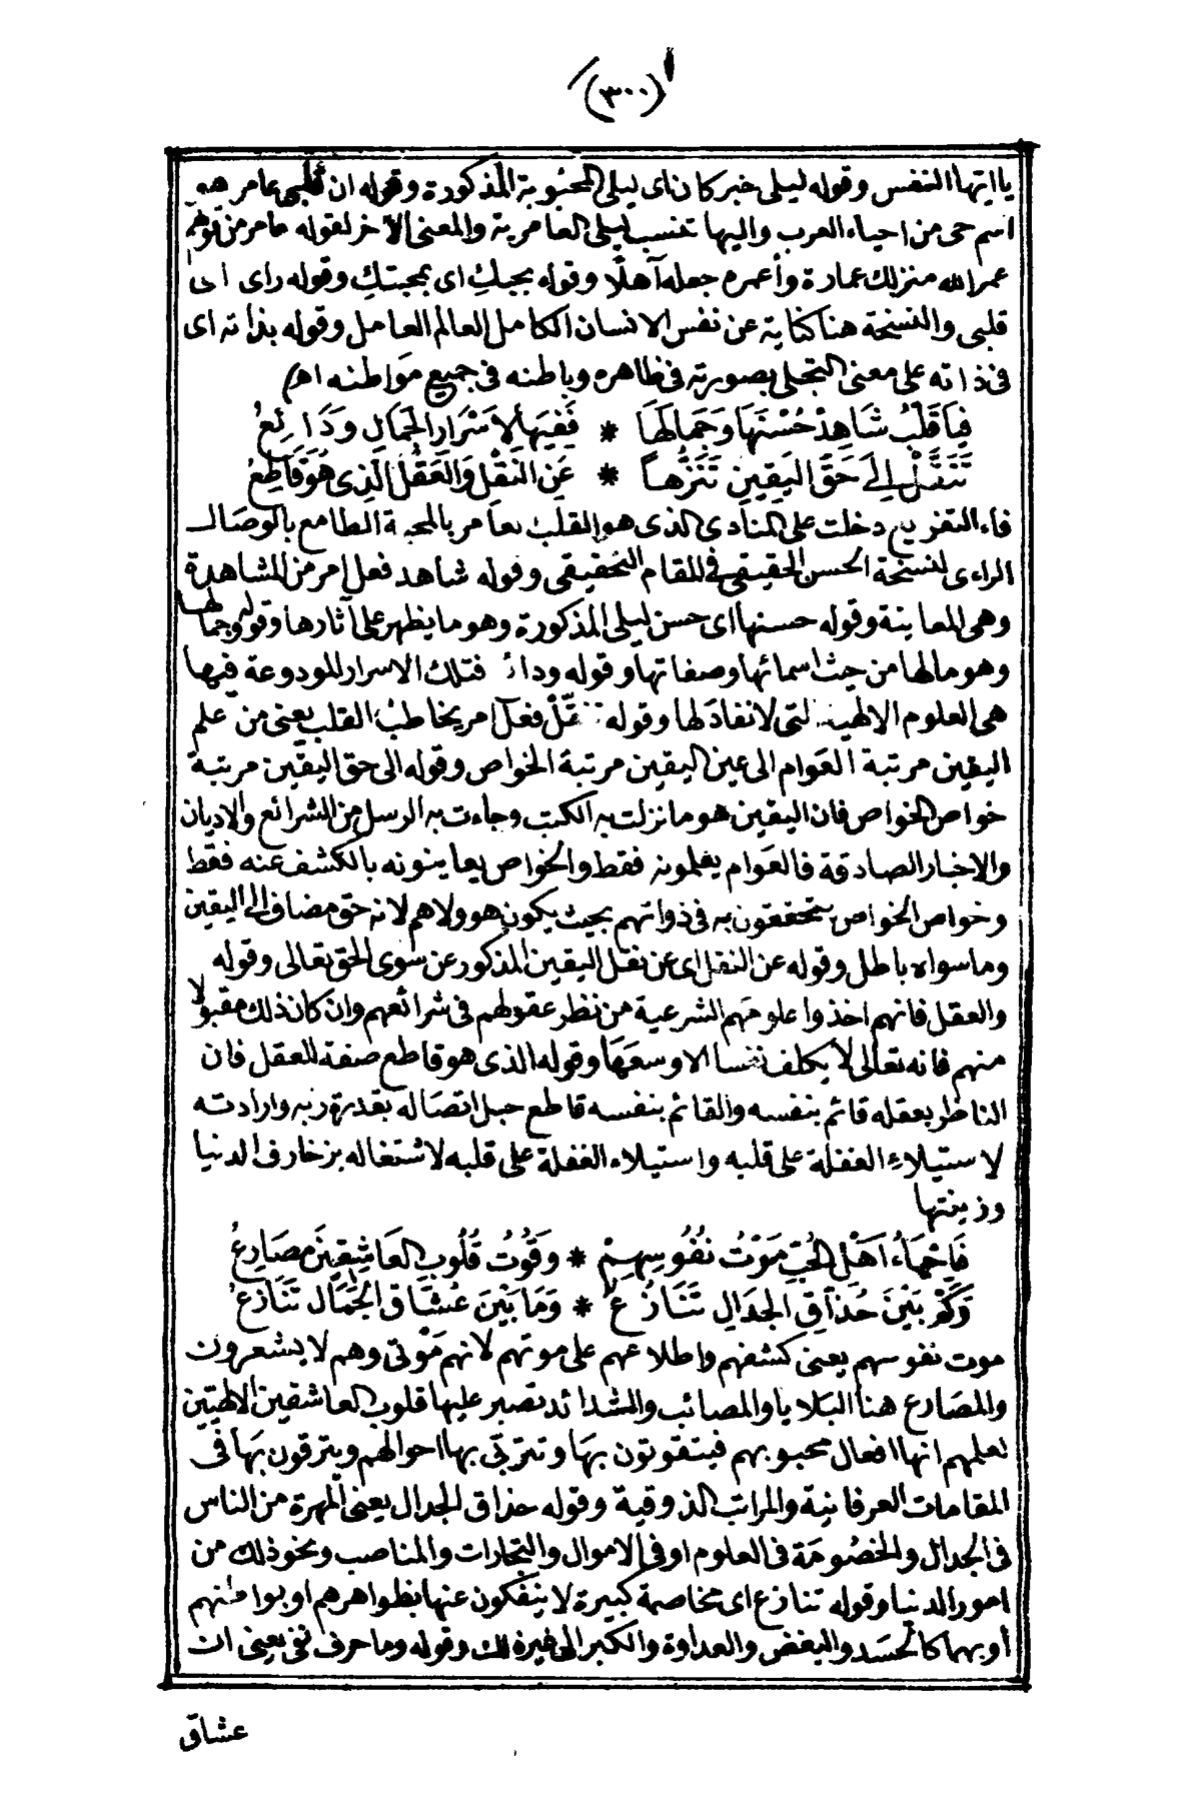 (٣٠٠)
يا ايتها النفس وقوله ليلى خبر كان اى ليلى المحبوبة المذكورة وقوله ان قلبى عامر هو
اسم حى من احياء العرب واليها تنسب ليلى العامرية والمعنى الآخر لقوله عامر من قولهم
عمر الله منزلك عمارة وأعمره جعله آهلًا وقوله بحبكِ اى بمحبتكِ وقوله راى اى
قلبى والنسخة هنا كناية عن نفس الانسان الكامل العالم العامل وقوله بذاته اى
فى ذاته على معنى التجلى بصورته فى ظاهره وباطنه فى جميع مَواطنه اهـ
فَيَا قَلْبُ شَاهِدْ حُسْنَهَا وَجَمَالَهَا * فَفِيهَا لِاَسْرَارِ الجَمَالِ وَدَائِعُ
تَنَقَّلْ إِلَى حَقِّ اليَقِينِ تَنَزُّهاً * عَنِ النَقْلِ وَالعَقْلِ الَّذِى هُوَ قَاطِعُ
فاء التفريع دخلت على المنادى الذى هو القلب العامر بالمحبة الطامع بالوصَال
الراءى لنسخة الحسن الحقيقى فى المقام التحقيقى وقوله شاهد فعل امر من المشاهدة
وهى المعاينة وقوله حسنها اى حسن ليلى المذكورة وهو ما يظهر على آثارها وقوله وجمالها
وهو مالها من حيث اسمائها وصفاتها وقوله ودائع فتلك الاسرار المودوعة فيها
هى العلوم الالهية التى لا نفادَ لها وقوله تنقّلْ فعل امر يخاطبُ القلب يعنى من علم
اليقين مرتبة العَوام الى عين اليقين مرتبة الخواص وقوله الى حق اليقين مرتبة
خواص الخواص فان اليقين هو ما نزلت به الكتب وجاءت به الرسل من الشرائع والاديان
والاخبار الصادقة فالعَوام يعلمونه فقط والخواص يعاينونه بالكشف عنه فقط
وخواص الخواص يتحققون به فى ذواتهم بحيث يكون هو ولاهم لانه حق مضاف الى اليقين
وما سواه باطل وقوله عن النقل اى عن نقل اليقين المذكور عن سوى الحق تعالى وقوله
والعقل فانهم اخذوا علومَهم الشرعية من نظر عقولهم فى شرائعهم وان كان ذلك مقبولا
منهم فانه تعالى لا يكلف نفسا الا وسعَهَا وقوله الذى هو قاطع صفة للعقل فان
الناظر بعقله قائم بنفسه والقائم بنفسه قاطع حبل اتصَاله بقدرة ربه وارادته
لاستيلاءِ الغفلة على قلبه واستيلاء الغفلة على قلبه لاشتغاله بزخارف الدنيا
وزينتها
فَإِحْيَاءُ اَهْلِ الحُبِّ مَوْتُ نُفُوسِهِمْ * وَقُوتُ قُلُوبِ العَاشِقِينَ مَصَارِعُ
وَكَمْ بَيْنَ حُذَّاقِ الجِدَالِ تَنَازُعٌ * وَمَا بَيْنَ عُشَّاقِ الجَمَالِ تَنَازعُ
موت نفوسهم يعنى كشفهم واطلاعهم على موتهم لانهم مَوْتى وهم لا يشعرون
والمصَارع هنا البلايا والمصائب والشدائد تصبر عليها قلوب العاشقين الالهيّين
لعلمهم انها افعال محبوبهم فيتقوتون بهَا وتتربّى بها احوالهم ويترقون بهَا فى
المقامات العرفانية والمراتب الذوقية وقوله حذاق الجدال يعنى المهرة من الناس
فى الجدال والخصُومَة فى العلوم او فى الاموال والتجارات والمناصب ونحو ذلك من
امور الدنيا وقوله تنازع اى مخاصمة كبيرة لا ينفكون عنها بظواهرهم او بواطنهم
أو بهما كالحسَد والبغض والعداوة والكبر الى غير ذلك وقوله وما حرف نفى يعنى ان
عشاق